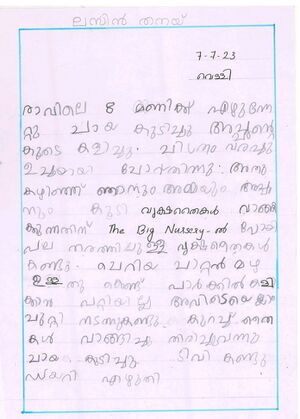 ലസിൻ തനയ്
7-7-23
വെള്ളി
രാവിലെ 8 മണിക്ക് എഴുന്നേ
റ്റു ചായ കുടിച്ചു അച്ഛന്റെ
കൂടെ കളിച്ചു. ചിത്രം വരച്ചു
ഉച്ചയായി ചോറ്തിന്നു. അതു
കഴിഞ്ഞ് ഞാനും അമ്മയും അച്ഛ
നും കൂടി വൃക്ഷതൈകൾ വാങ്ങി
ക്കുന്നതിന് The Big Nursery-ൽ പോയി
പല തരത്തിലുള്ള വൃക്ഷതൈകൾ
കണ്ടു. ചെറിയ ചാറ്റൻ മഴ
ഉള്ളതു കൊണ്ട് പാർക്കിൽ കളി
ക്കാൻ പറ്റിയില്ല അവിടെയൊക്കെ
ചുറ്റി നടന്നുകണ്ടു. കുറച്ച് തൈ
കൾ വാങ്ങിച്ചു തിരിച്ചുവന്നു
ചായ കുടിച്ചു ടിവി കണ്ടു
ഡയറി എഴുതി